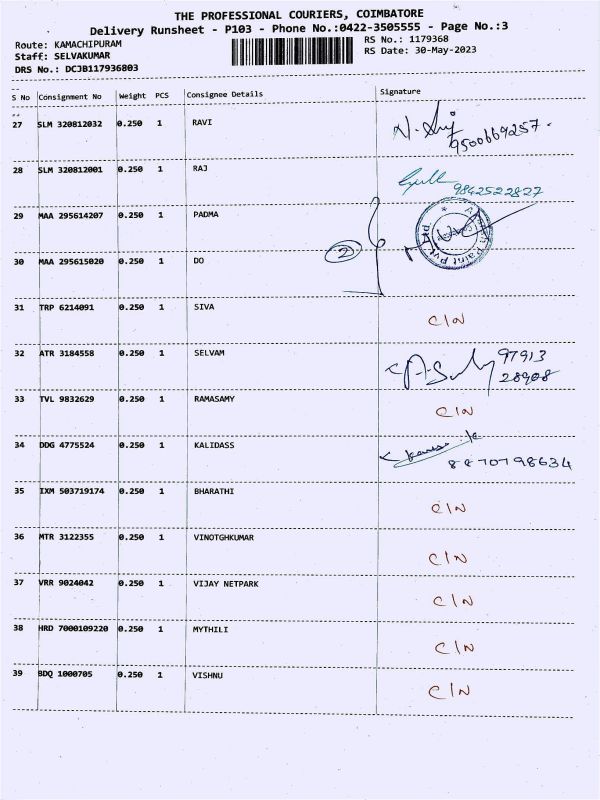 THE PROFESSIONAL COURIERS, COIMBATORE
Delivery Runsheet - P103 - Phone No.:0422-3505555 - Page No.:3
Route: KAMACHIPURAM RS No.: 1179368
Staff: SELVAKUMAR RS Date: 30-May-2023
DRS No.: DCJB117936803
S No Consignment No Weight PCS Consignee Details Signature
27 SLM 320812032 0.250 1 RAVI
9500669257.
28 SLM 320812001 0.250 1 RAJ
9842522827
29 MAA 295614207 0.250 1 PADMA
2
Paint Pvt Ltd
30 MAA 295615020 0.250 1 DO
31 TRP 6214091 0.250 1 SIVA
C/N
32 ATR 3184558 0.250 1 SELVAM
97913
28908
33 TVL 9832629 0.250 1 RAMASAMY
C/N
34 DDG 4775524 0.250 1 KALIDASS
8870798634
35 IXM 503719174 0.250 1 BHARATHI
C/N
36 MTR 3122355 0.250 1 VINOTGHKUMAR
C/N
37 VRR 9024042 0.250 1 VIJAY NETPARK
C/N
38 HRD 7000109220 0.250 1 MYTHILI
C/N
39 BDQ 1000705 0.250 1 VISHNU
C/N